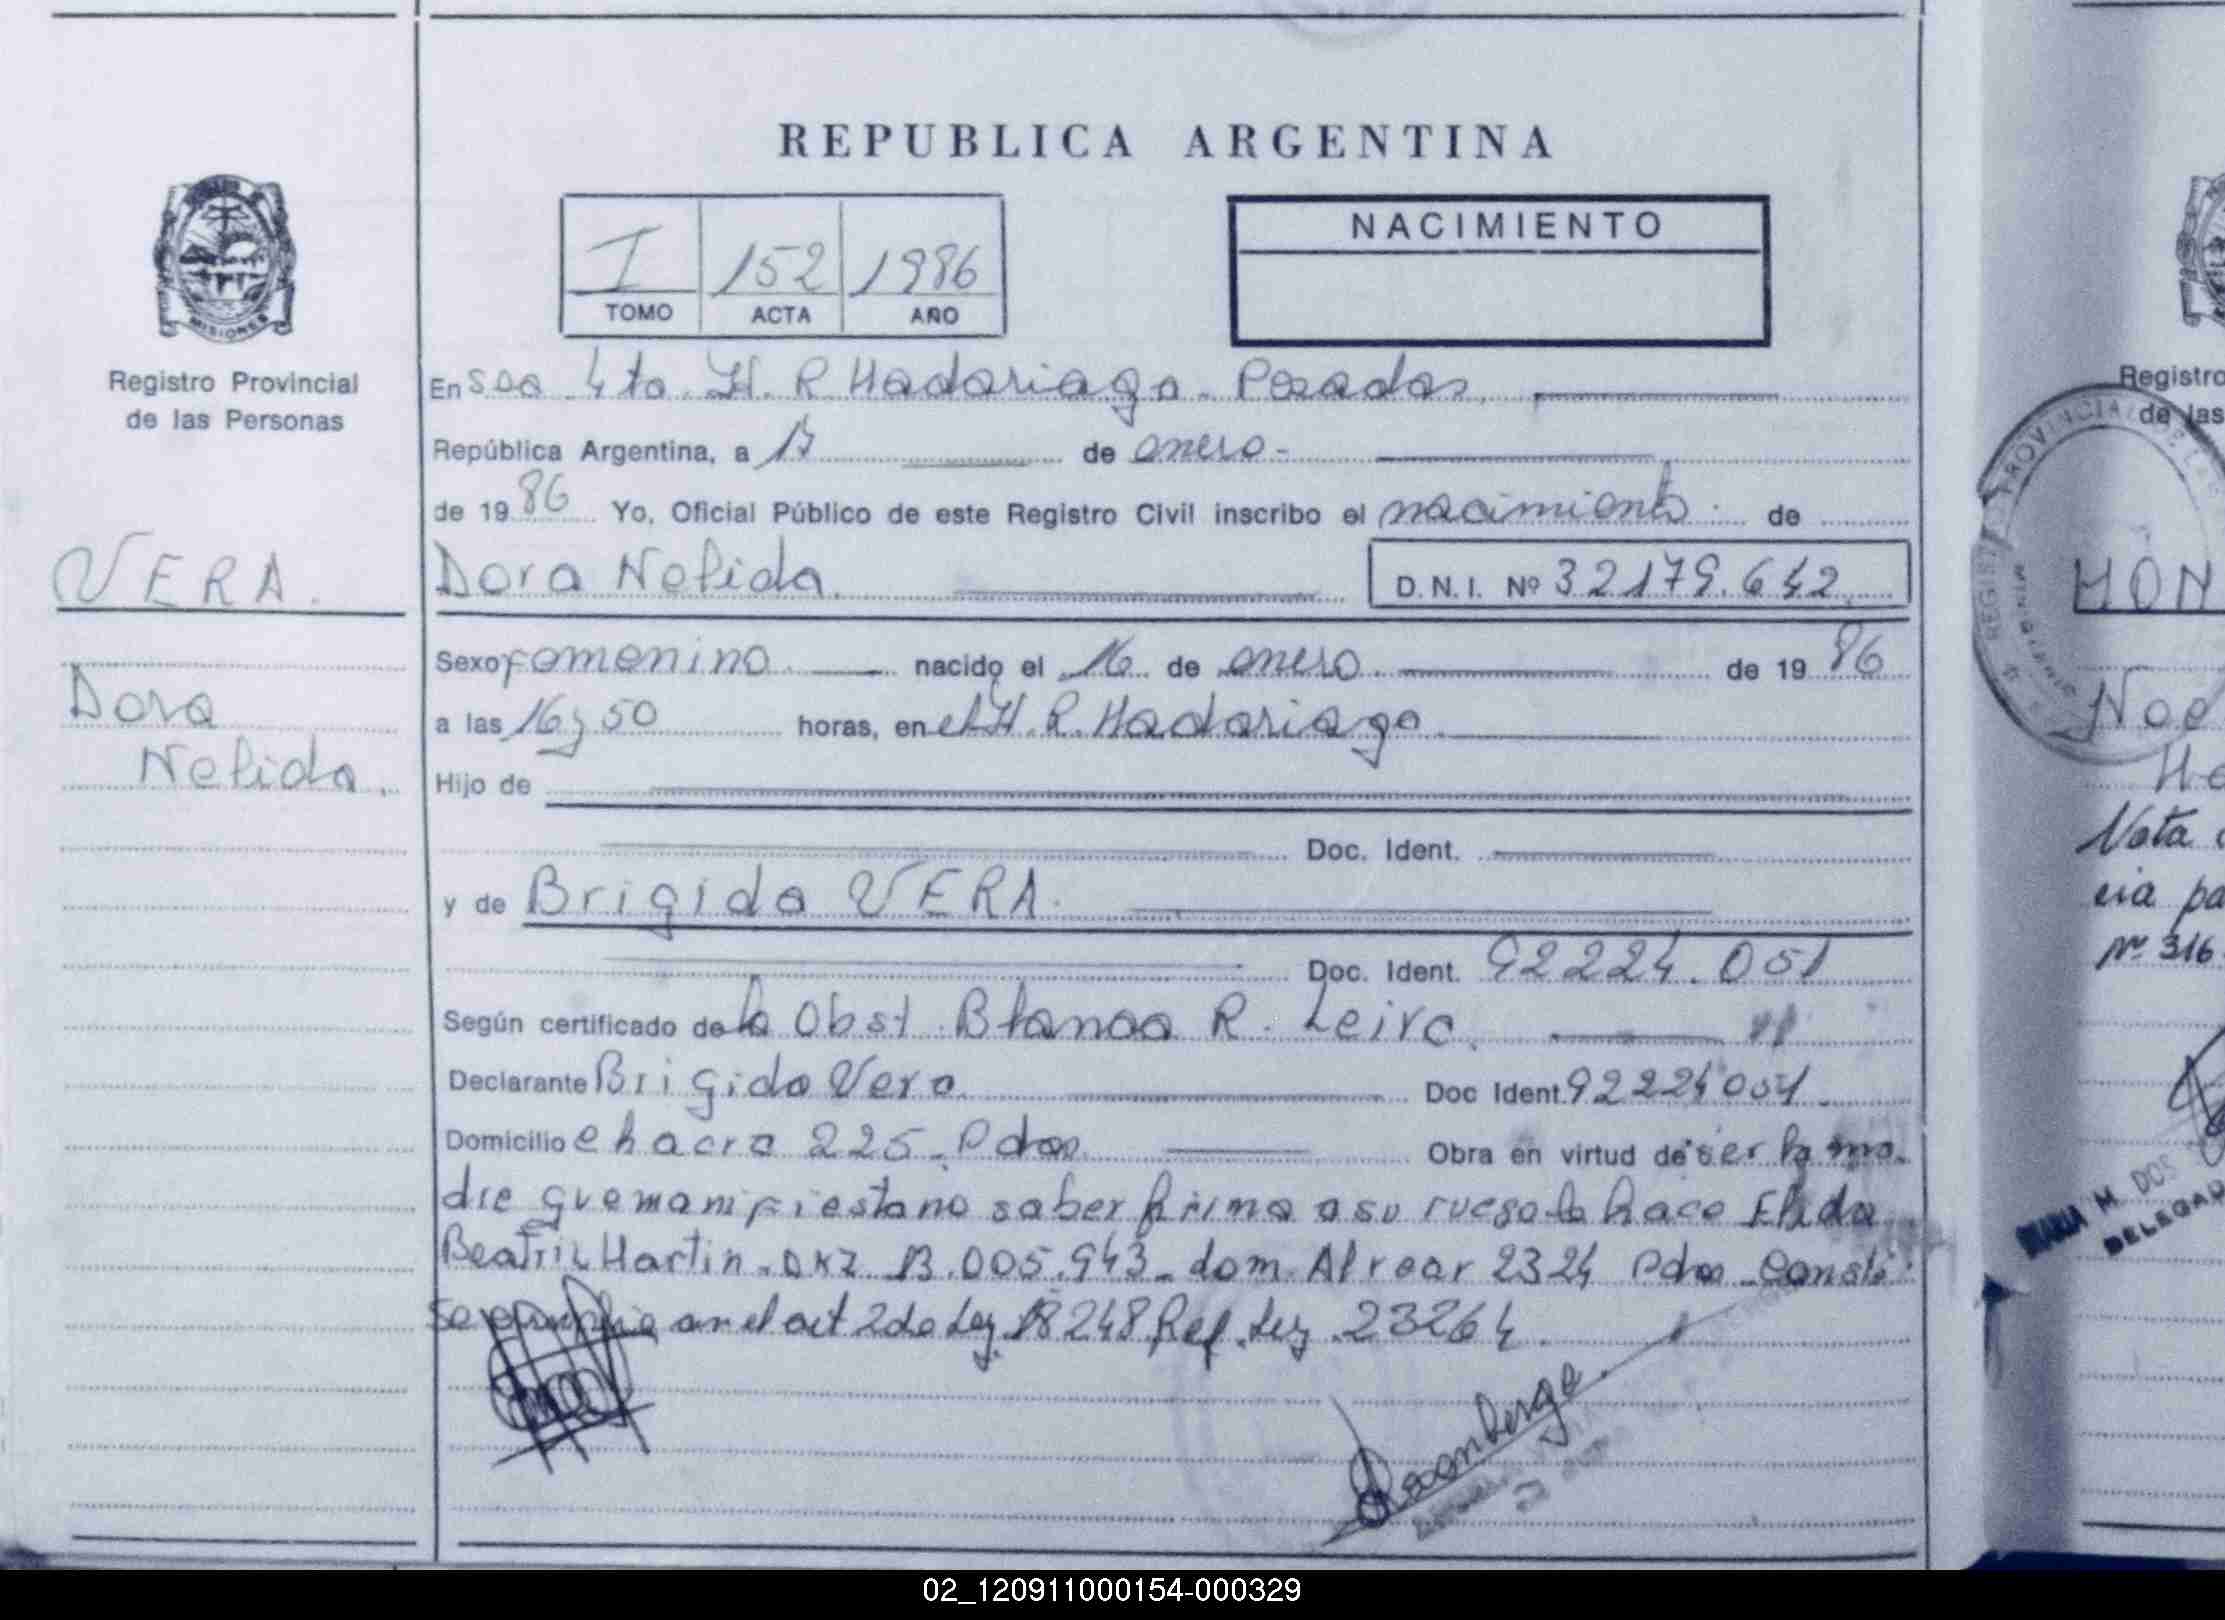 REPUBLICA ARGENTINA
MISIONES
Registro Provincial
de las Personas
I 152 1986
TOMO ACTA AÑO
NACIMIENTO
En Sec. 4ta. H. R. Madariaga - Posadas,
República Argentina, a de enero -
de 1986 Yo, Oficial Público de este Registro Civil inscribo el nacimiento de
VERA.
Dora Nelida. D.N.I. Nº 32179.642
Sexo femenino nacido el 16 de enero de 1986
Dora
Nelida.
a las 16 y 50 horas, en el H. R. Madariaga
Hijo de
Doc. Ident.
y de Brigida VERA.
Doc. Ident. 92224.051
Según certificado de la Obst. Blanca R. Leiva.
Declarante Brigida Vera Doc Ident. 92224051
Domicilio chacra 225 - Pdas Obra en virtud de ser la ma-
dre que manifiesta no saber firma a su ruego lo hace Elida
Beatriz Martin - 13.005.943 - dom. Alvear 2324 Pdas
en el art 2 de Ley 18248 Ref. Ley 23264.
Registro
de las
PROVINCIAL DE LAS
MON
Noe
Nota
cia pa
Nº 316
MARIA M. DOS
DELEGAD
02_120911000154-000329